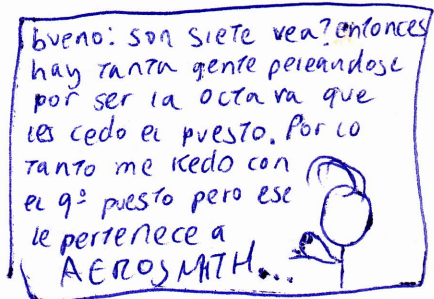 bueno: son siete vea? entonces
hay tanta gente peleandose
por ser la octava que
les cedo el puesto. Por lo
tanto me kedo con
el 9º puesto pero ese
le pertenece a
AEROSMITH...